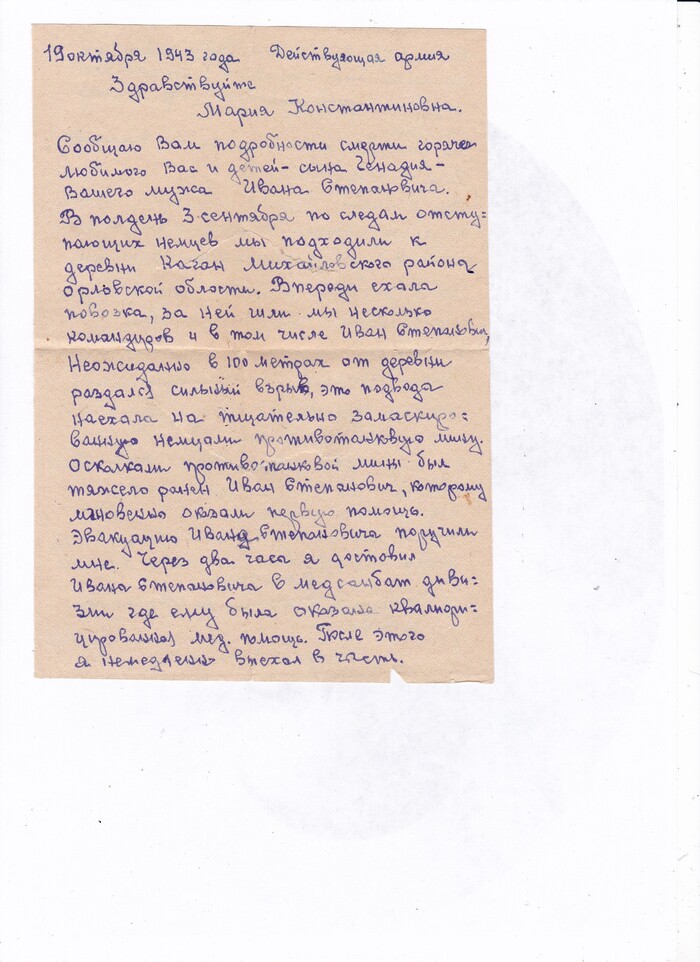 19 октября 1943 года Действующая армия
Здравствуйте
Мария Константиновна.
Сообщаю Вам подробности смерти горячо
любимого Вас и детей - сына Генадия -
Вашего мужа Ивана Степановича.
В полдень 3 сентября по следам отсту=
пающих немцев мы подходили к
деревни Каган Михайловского района
орловской области. Впереди ехала
повозка, за ней шли мы несколько
командиров и в том числе Иван Степанович,
Неожиданно в 100 метрах от деревни
раздался сильный взрыв, это подвода
наехала на тщательно замаскиро=
ванную немцами противотанковую мину.
Осколками противотанковой мины был
тяжело ранен Иван Степанович, которому
мгновенно оказали первую помощь.
Эвакуацию Ивана Степановича поручили
мне. Через два часа я доставил
Ивана Степановича в медсанбат диви=
зии где ему была оказана квалифи=
цированная мед. помощь. После этого
я немедленно выехал в часть.